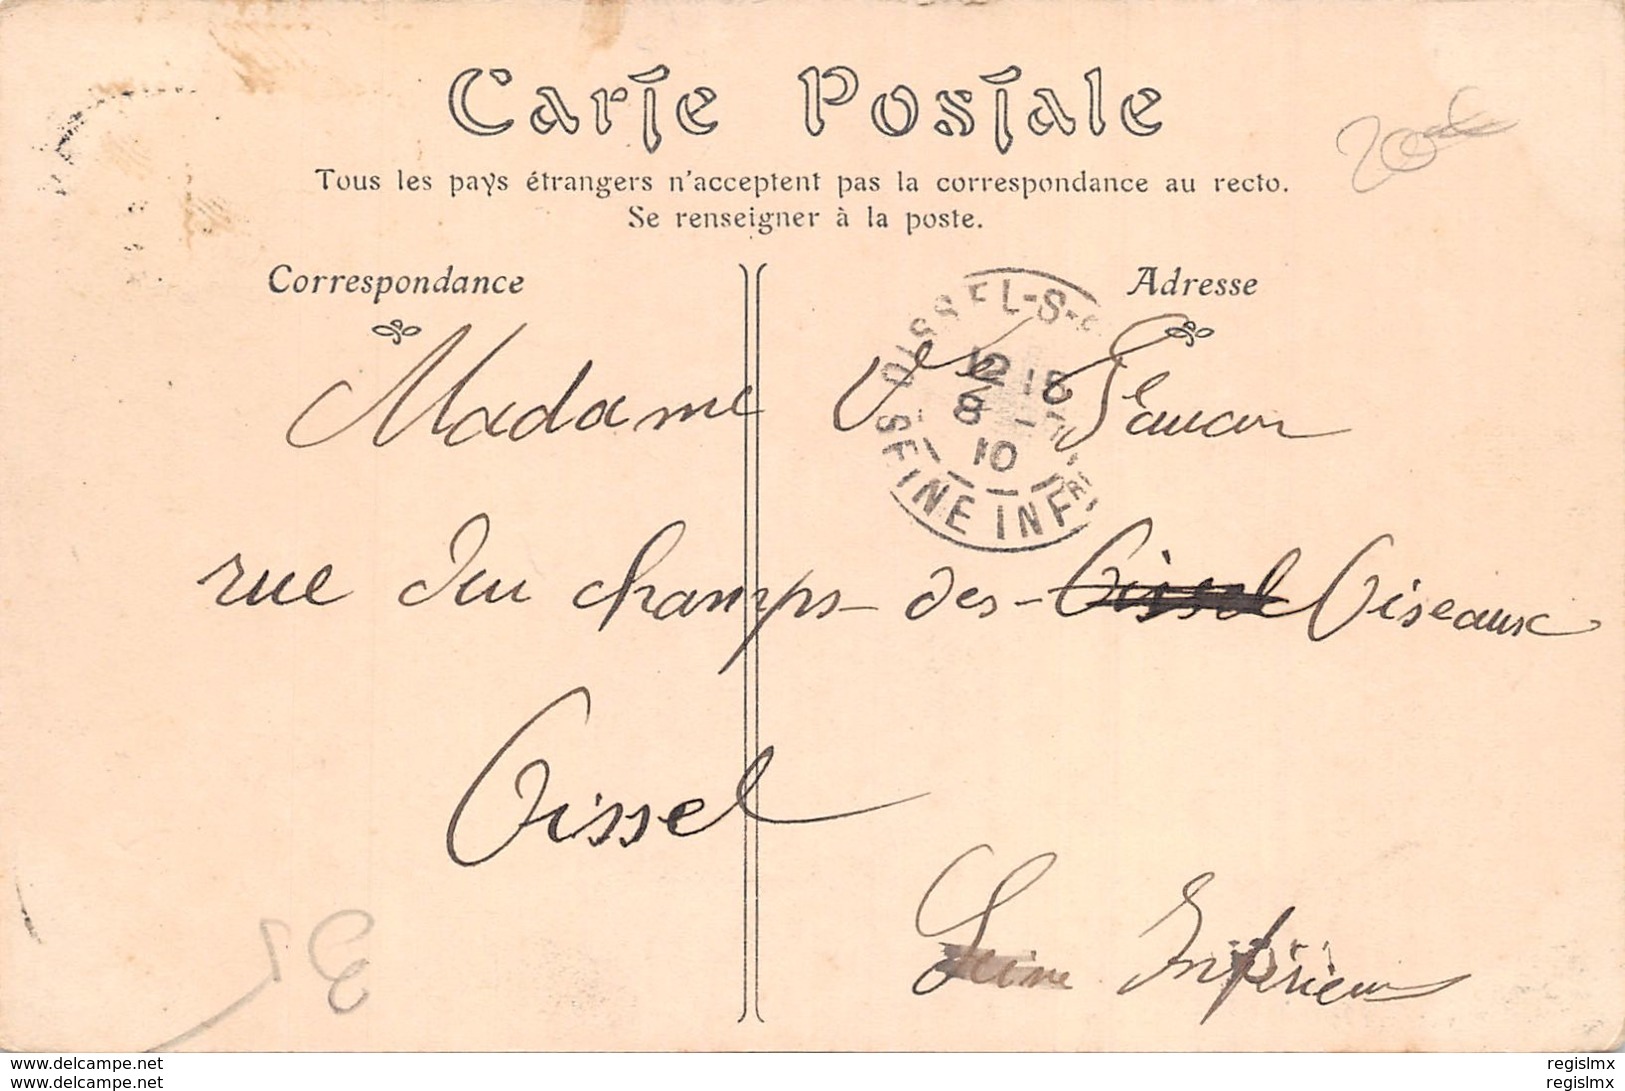 Carte Postale
Tous les pays étrangers n'acceptent pas la correspondance au recto.
Se renseigner à la poste.
Correspondance
Adresse
OISSEL-S-S
SEINE INFRE
12 15
8 -
10
Madame Vve
rue du champs-des-Oissel Oiseaux
Oissel
Seine Inférieure
www.delcampe.net
www.delcampe.net
regislmx
regislmx